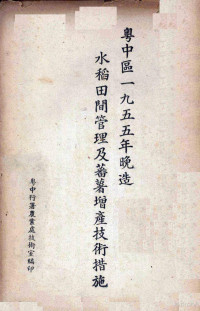 粵中區一九五五年晚造
水稻田間管理及蕃薯增產技術措施
粵中行署農業處技術室編印